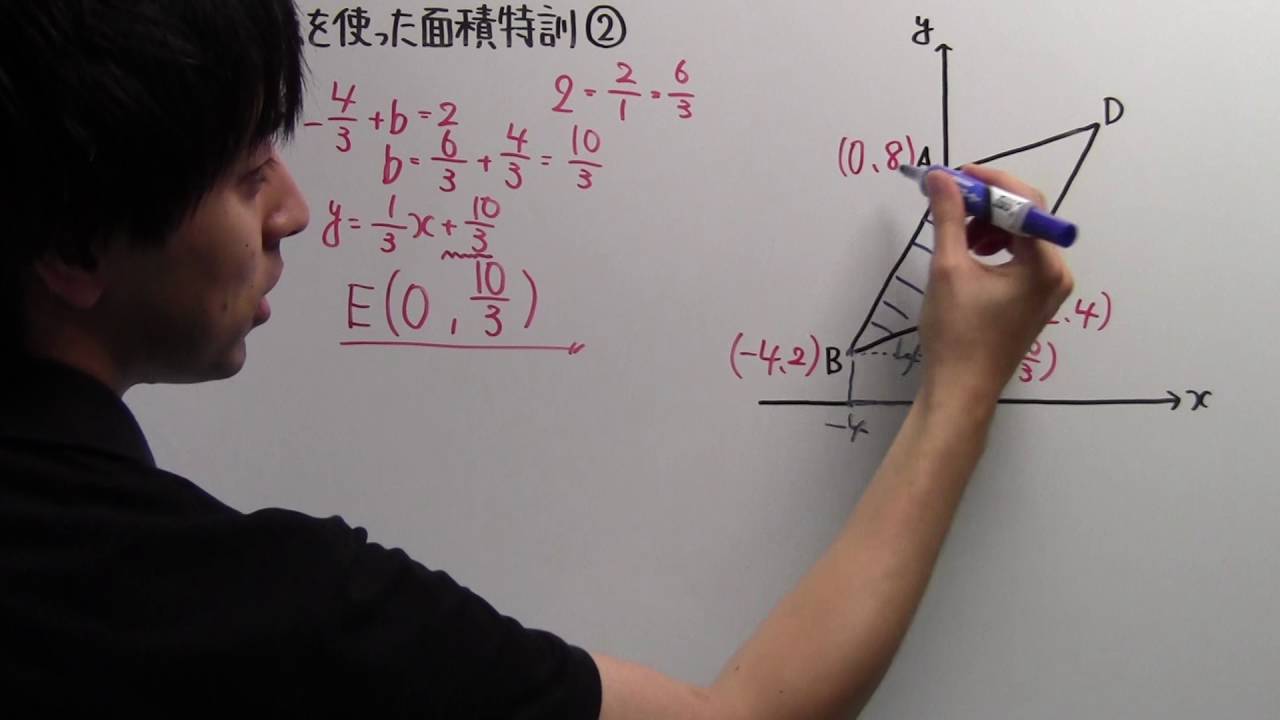 を使った面積特訓②
-4/3+b=2
2=2/1=6/3
b=6/3+4/3=10/3
y=1/3x+10/3
E(0,10/3)
y
D
(0、8)A
、4)
(-4、2)B
4
3)
x
-4